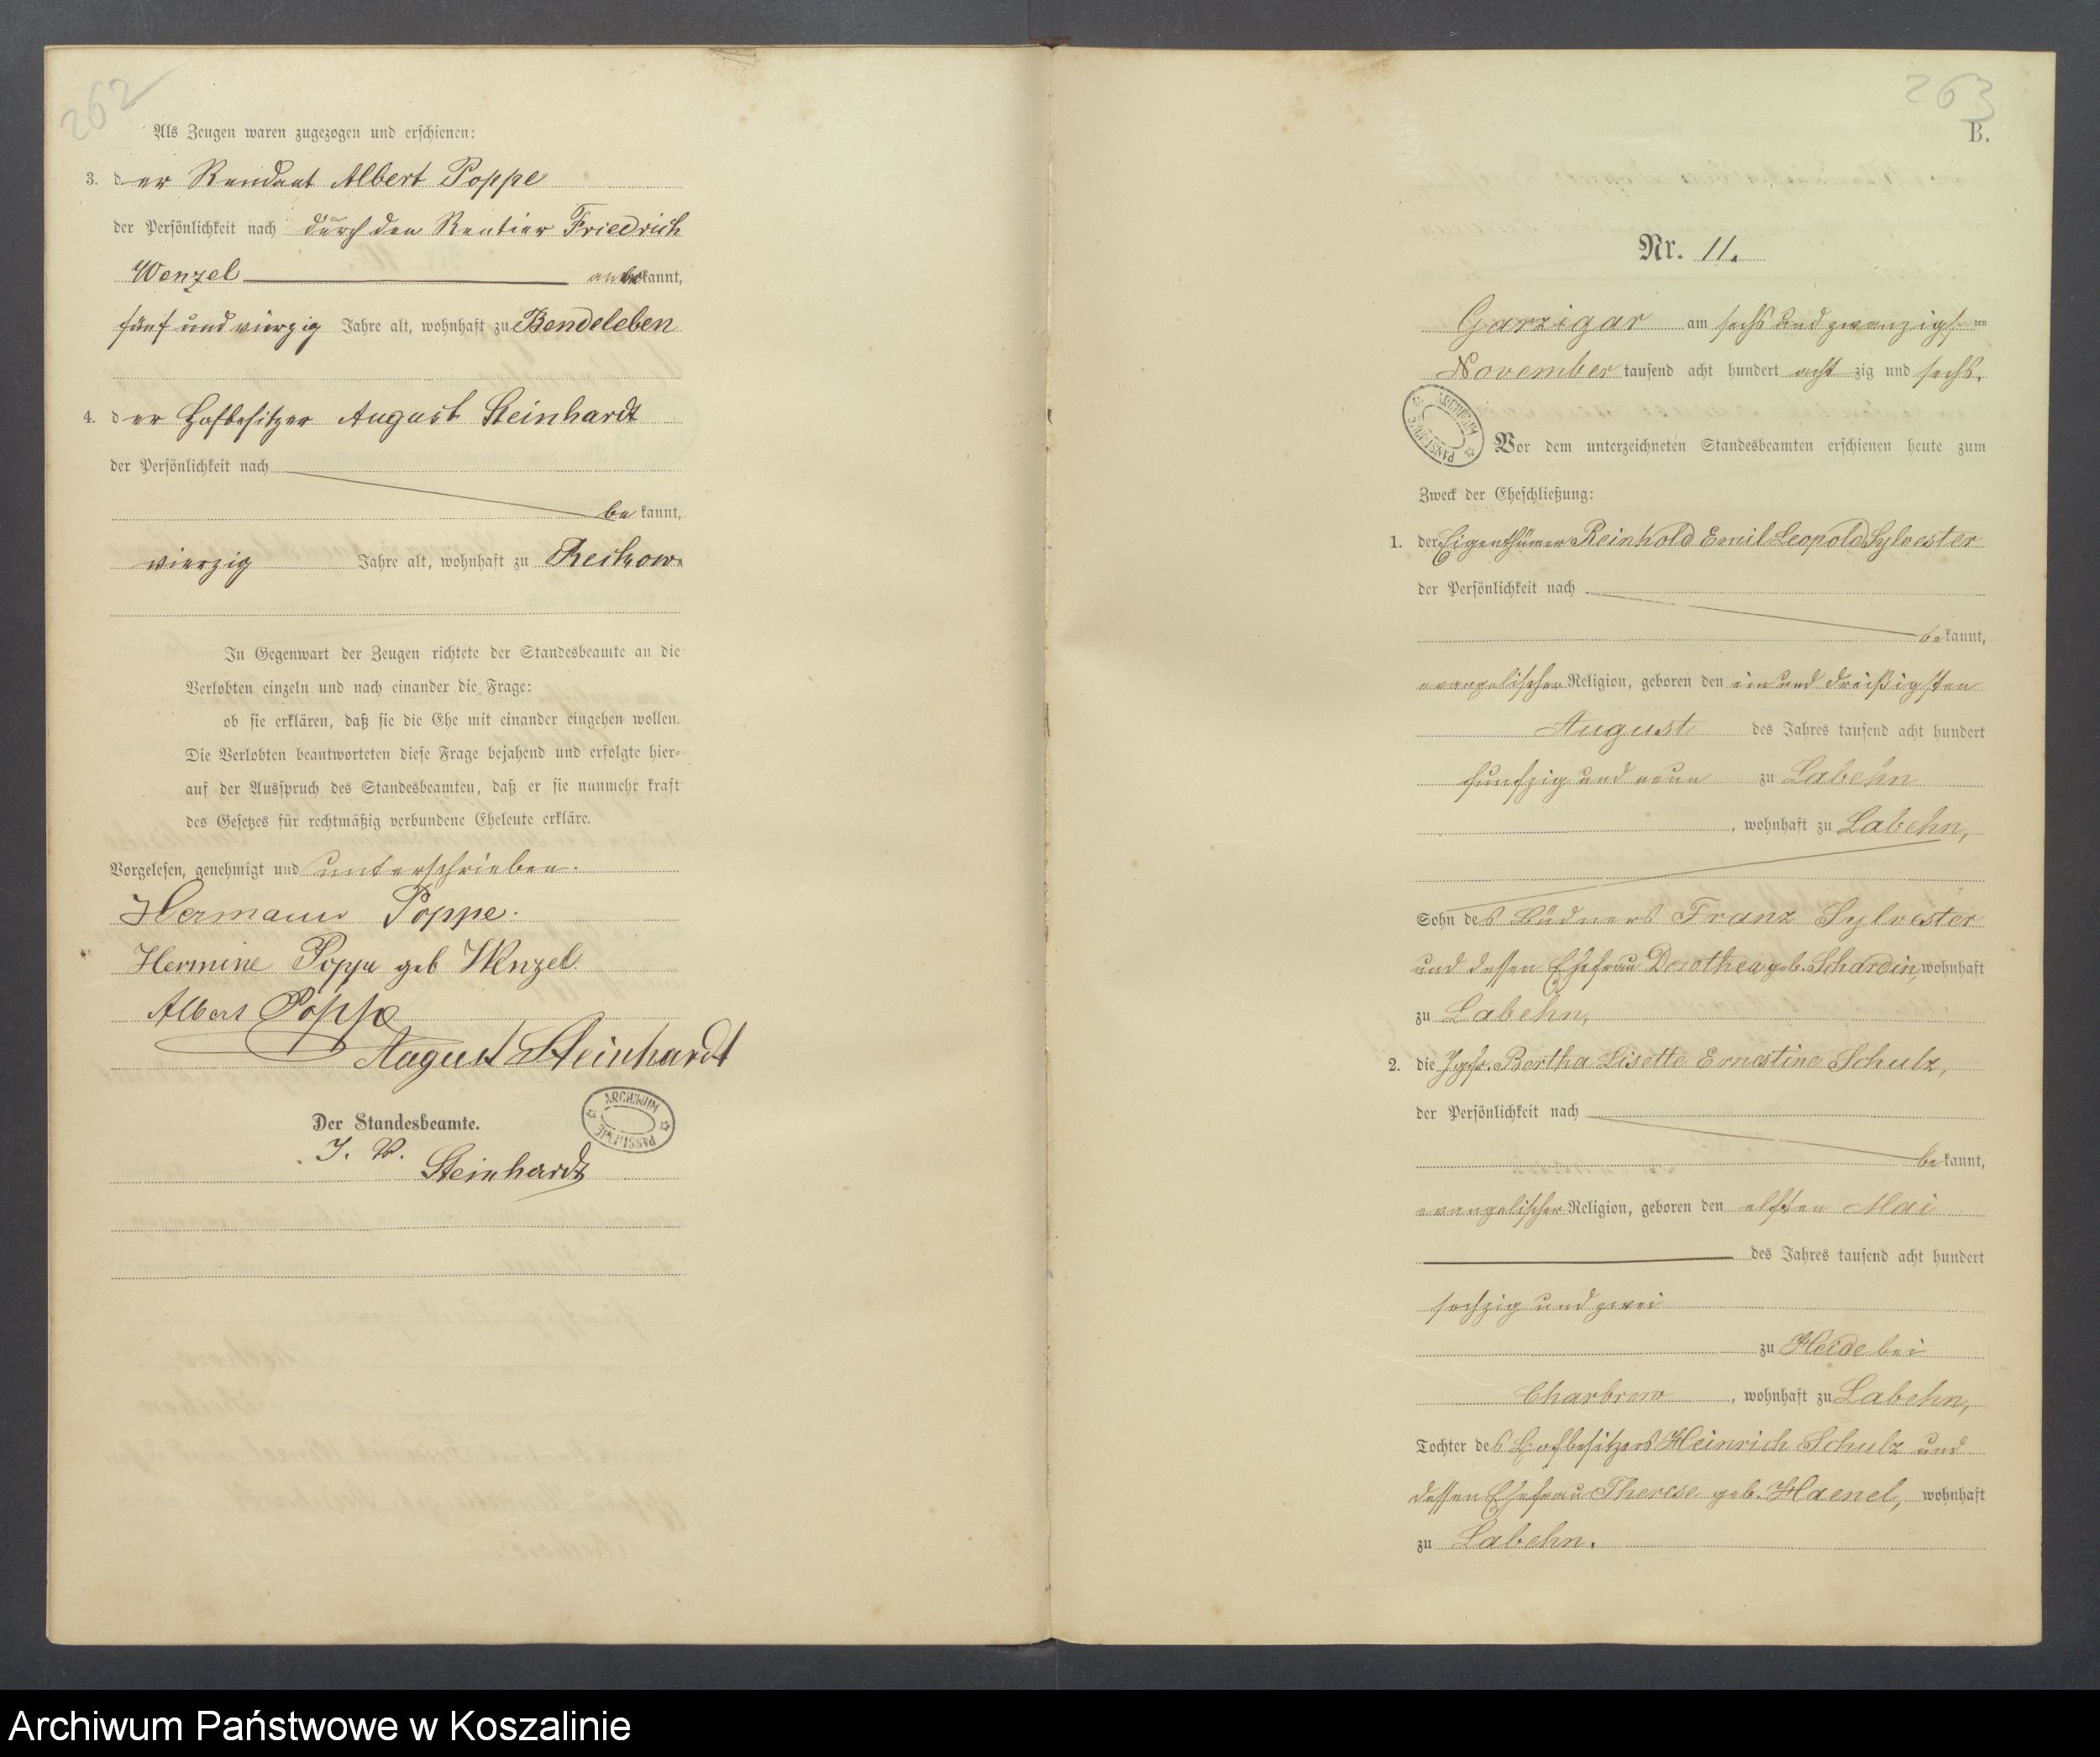 262
Als Zeugen waren zugezogen und erschienen:
3. der Rendant Albert Poppe
der Persönlichkeit nach durch den Rentier Friedrich
Wenzel anerkannt,
fünf und vierzig Jahre alt, wohnhaft zu Bendeleben
4. der Hofbesitzer August Steinhardt
der Persönlichkeit nach
be kannt,
vierzig Jahre alt, wohnhaft zu Reckow.
In Gegenwart der Zeugen richtete der Standesbeamte an die
Verlobten einzeln und nach einander die Frage:
ob sie erklären, daß sie die Ehe mit einander eingehen wollen.
Die Verlobten beantworteten diese Frage bejahend und erfolgte hier-
auf der Ausspruch des Standesbeamten, daß er sie nunmehr kraft
des Gesetzes für rechtmäßig verbundene Eheleute erkläre.
Vorgelesen, genehmigt und unterschrieben.
Hermann Poppe.
Hermine Poppe geb Wenzel.
Albert Poppe
August Steinhardt
Der Standesbeamte.
J. V.
Steinhardt
ARCHIWUM PAŃSTWOWE
263
B.
Nr. 11.
Garzigar am sechs und zwanzigsten
November tausend acht hundert acht zig und sechs.
ARCHIWUM PAŃSTWOWE
Vor dem unterzeichneten Standesbeamten erschienen heute zum
Zweck der Eheschließung:
1. der Eigenthümer Reinhold Emil Leopold Sylvester
der Persönlichkeit nach
be kannt,
evangelischer Religion, geboren den ein und dreißigsten
August des Jahres tausend acht hundert
funfzig und neun zu Labehn
, wohnhaft zu Labehn,
Sohn des Büdners Franz Sylvester
und dessen Ehefrau Dorothea geb. Schardin, wohnhaft
zu Labehn,
2. die Jgfr. Bertha Lisette Ernestine Schulz,
der Persönlichkeit nach
be kannt,
evangelischer Religion, geboren den elften Mai
des Jahres tausend acht hundert
sechzig und zwei
zu Heide bei
Charbrow, wohnhaft zu Labehn,
Tochter des Hofbesitzers Heinrich Schulz und
dessen Ehefrau Therese geb. Haenel, wohnhaft
zu Labehn.
Archiwum Państwowe w Koszalinie